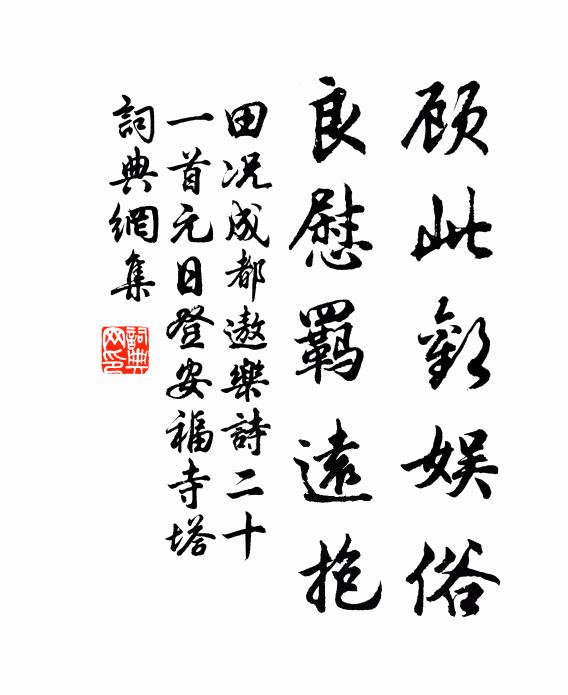 顾此歡娱俗
良慰羈遠抱
田况成都遨樂詩二十
一首元日登安福寺塔
詞典網集
詞典網印